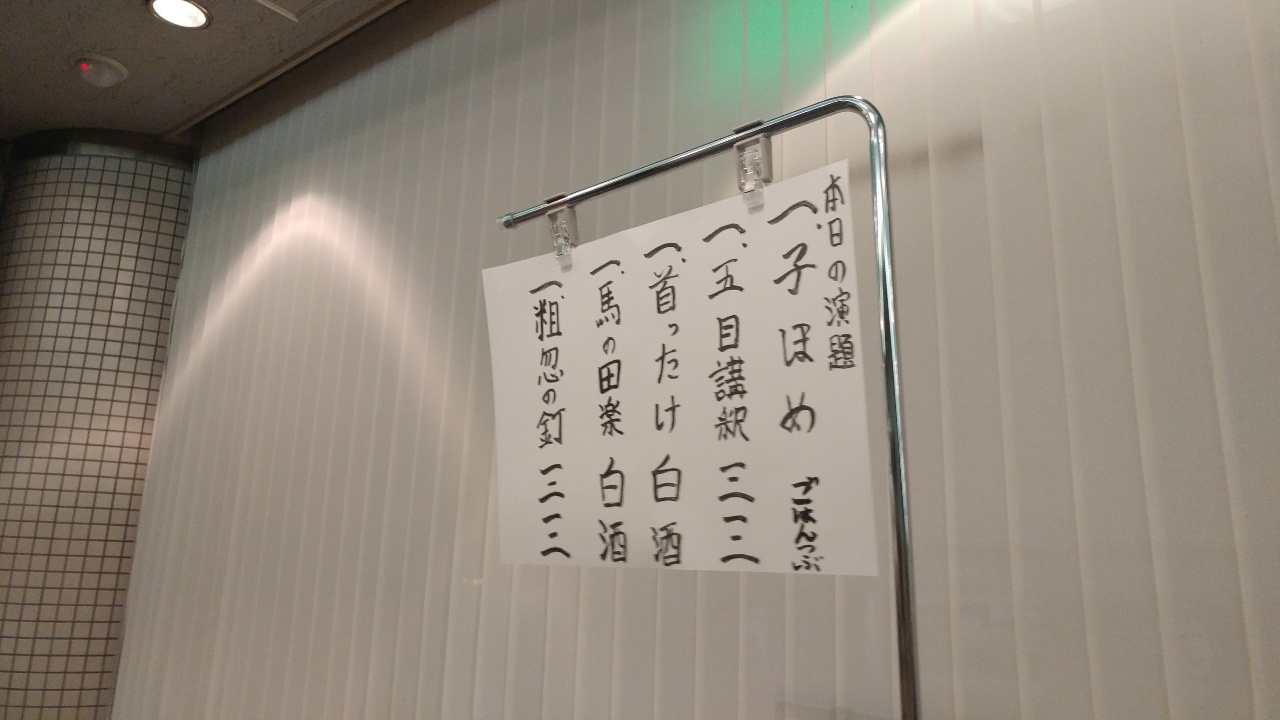 本日の演題
一、子ほめ ごはんつぶ
一、五目講釈 一二三
一、首ったけ 白酒
一、馬の田楽 白酒
一、粗忽の釘